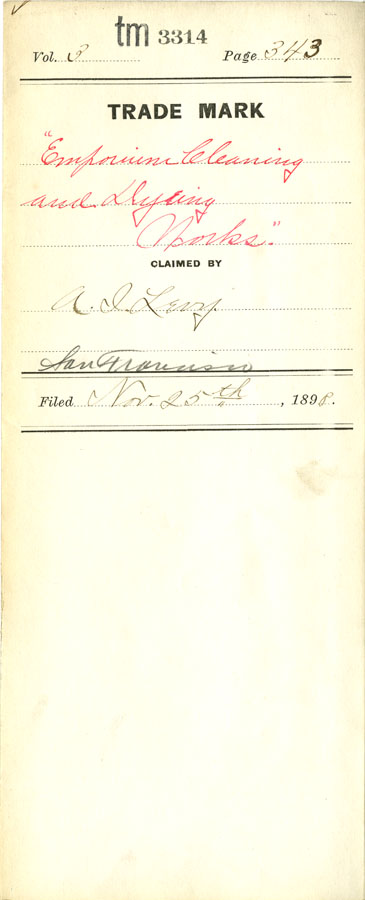 tm 3314
Vol. 3 Page 343
TRADE MARK
"Emporium Cleaning
and Dyeing
Works."
CLAIMED BY
A. I. Levy.
San Francisco
Filed Nov. 25th, 1898.